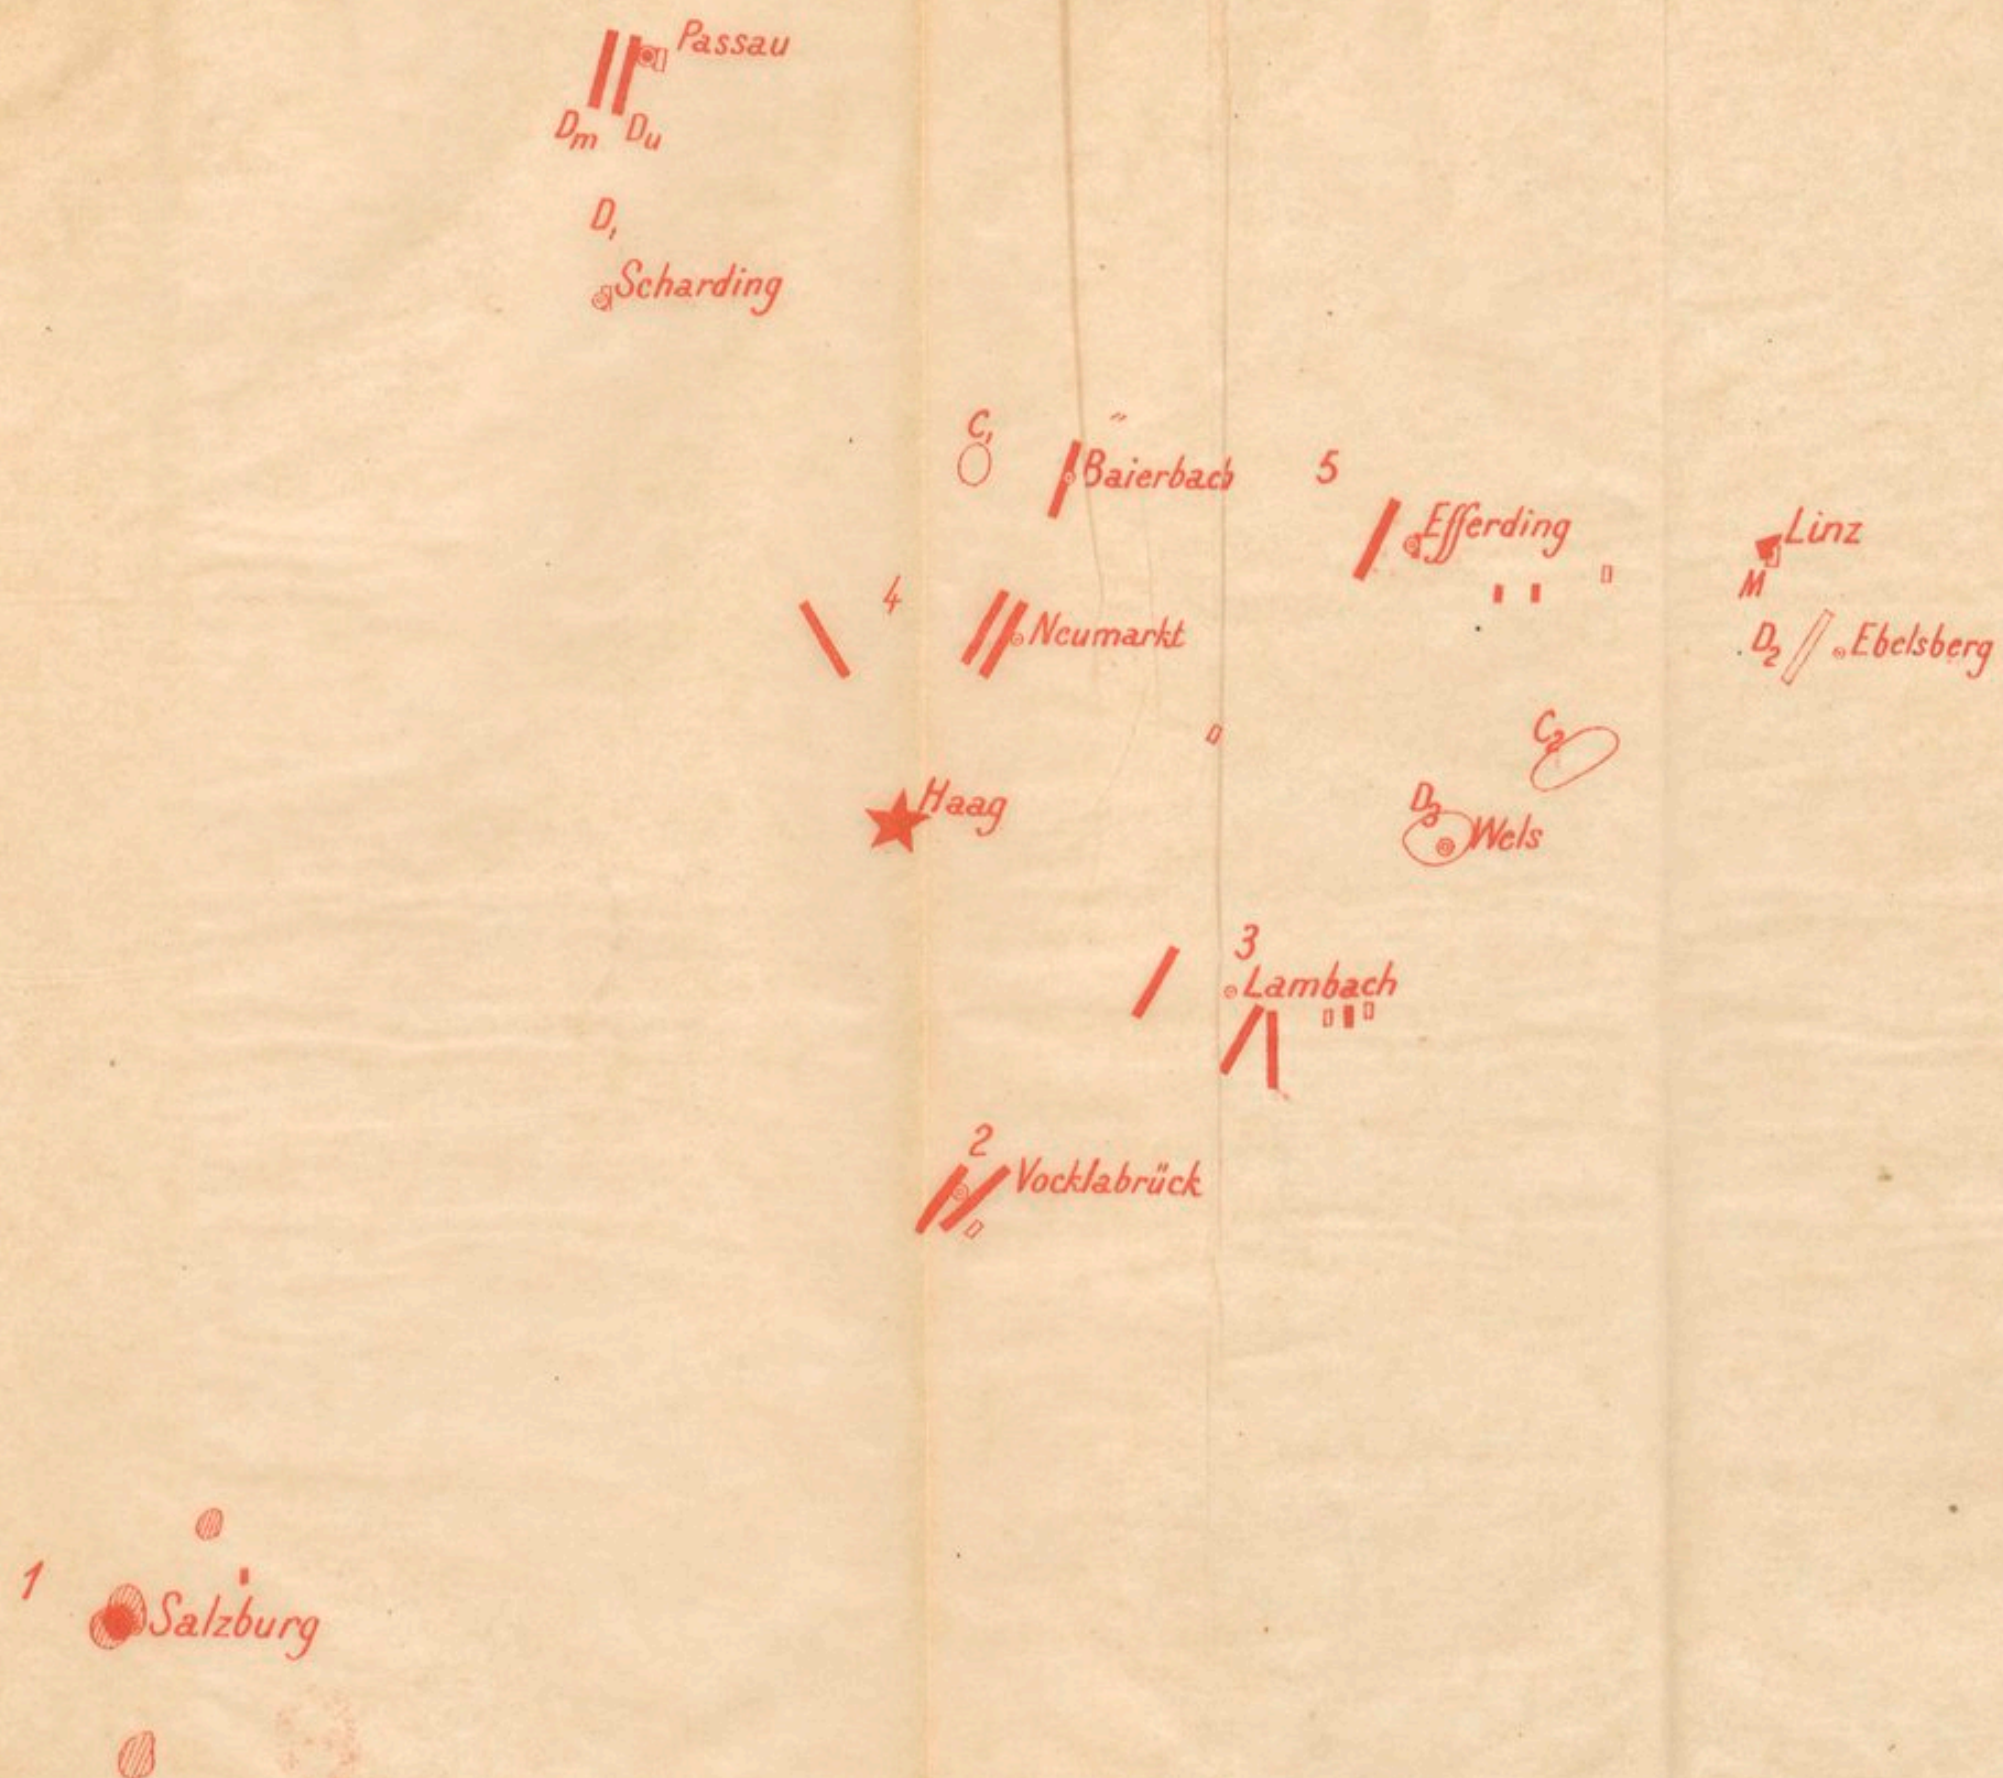 Passau
Dm Du
D1
Scharding
C1
Baierbach
5
Efferding
Linz
M
4
Neumarkt
D2
Ebelsberg
C2
Haag
D3
Wels
3
Lambach
2
Vocklabrück
1
Salzburg